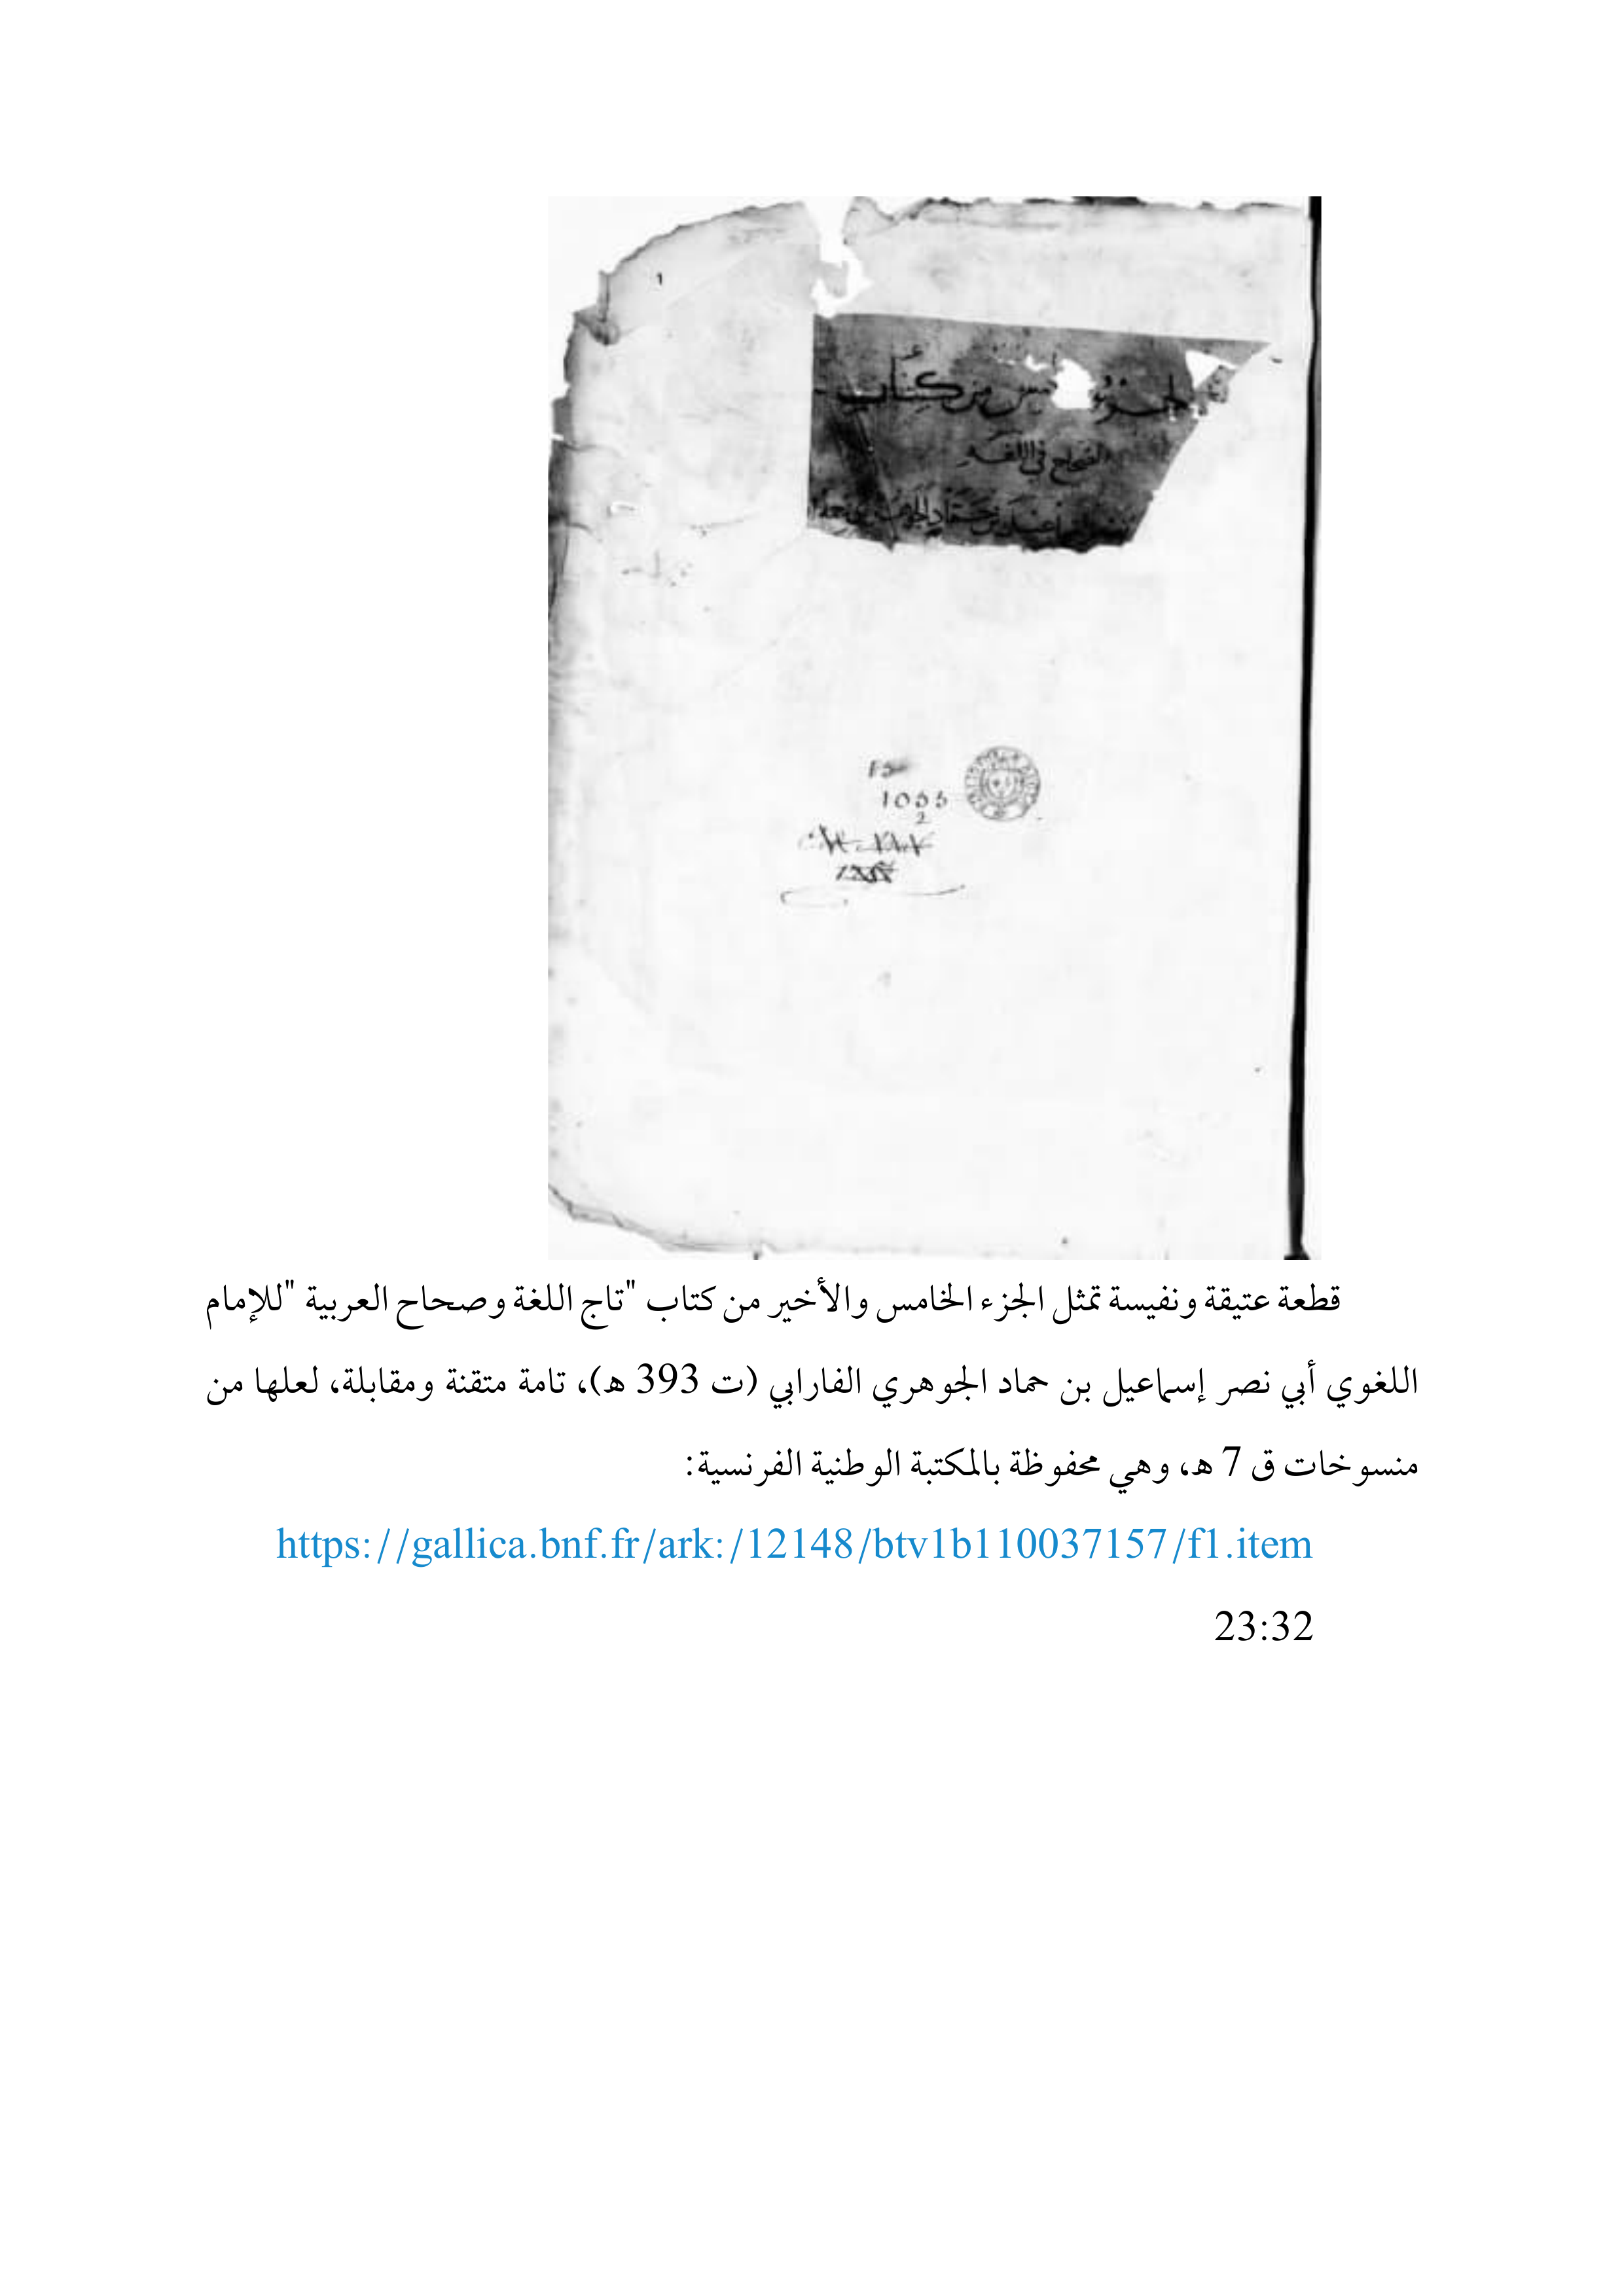 1
الجزو مس من كتاب
الصحاح في اللغة
بن حماد
1055
2
قطعة عتيقة ونفيسة تمثل الجزء الخامس والأخير من كتاب "تاج اللغة وصحاح العربية "للإمام
اللغوي أبي نصر إسماعيل بن حماد الجوهري الفارابي (ت 393 هـ)، تامة متقنة ومقابلة، لعلها من
منسوخات ق 7 هـ، وهي محفوظة بالمكتبة الوطنية الفرنسية:
https://gallica.bnf.fr/ark:/12148/btv1b110037157/f1.item
23:32